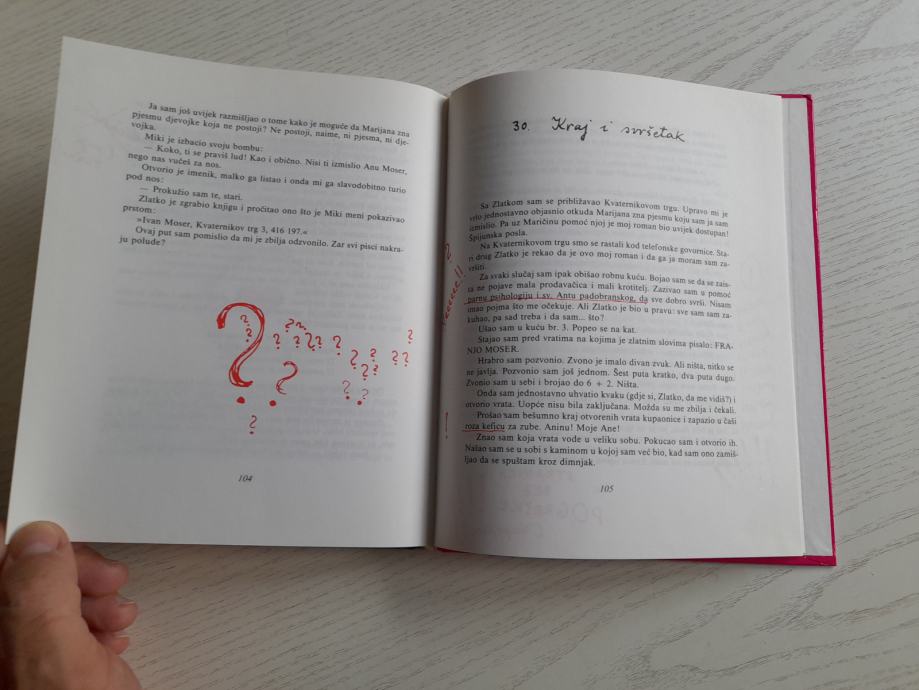 Ja sam još uvijek razmišljao o tome kako je moguće da Marijana zna
pjesmu djevojke koja ne postoji? Ne postoji, naime, ni pjesma, ni dje-
vojka.
Miki je izbacio svoju bombu:
— Koko, ti se praviš lud! Kao i obično. Nisi ti izmislio Anu Moser,
nego nas vučeš za nos.
Otvorio je imenik, malko ga listao i onda mi ga slavodobitno turio
pod nos:
— Prokužio sam te, stari.
Zlatko je zgrabio knjigu i pročitao ono što je Miki meni pokazivao
prstom:
»Ivan Moser, Kvaternikov trg 3, 416 197.«
Ovaj put sam pomislio da mi je zbilja odzvonilo. Zar svi pisci nakra-
ju polude?
? ? ? ? ? ? ? ? ? ? ? ? ? ? ? ? ? ? ?
104
30. Kraj i svršetak
Sa Zlatkom sam se približavao Kvaternikovom trgu. Upravo mi je
vrlo jednostavno objasnio otkuda Marijana zna pjesmu koju sam ja sam
izmislio. Pa uz Maričinu pomoć njoj je moj roman bio uvijek dostupan!
Špijunska posla.
Na Kvaternikovom trgu smo se rastali kod telefonske govornice. Sta-
ri drug Zlatko je rekao da je ovo moj roman i da ga ja moram sam za-
vršiti.
Za svaki slučaj sam ipak obišao robnu kuću. Bojao sam se da se zais-
ta ne pojave mala prodavačica i mali krotitelj. Zazivao sam u pomoć
parnu psihologiju i sv. Antu padobranskog, da sve dobro svrši. Nisam
imao pojma što me očekuje. Ali Zlatko je bio u pravu: sve sam sam za-
kuhao, pa sad treba i da sam... što?
Ušao sam u kuću br. 3. Popeo se na kat.
Stajao sam pred vratima na kojima je zlatnim slovima pisalo: FRA-
NJO MOSER.
Hrabro sam pozvonio. Zvono je imalo divan zvuk. Ali ništa, nitko se
ne javlja. Pozvonio sam još jednom. Šest puta kratko, dva puta dugo.
Zvonio sam u sebi i brojao do 6 + 2. Ništa.
Onda sam jednostavno uhvatio kvaku (gdje si, Zlatko, da me vidiš?) i
otvorio vrata. Uopće nisu bila zaključana. Možda su me zbilja i čekali.
Prošao sam bešumno kraj otvorenih vrata kupaonice i zapazio u čaši
roza keficu za zube. Aninu! Moje Ane!
Znao sam koja vrata vode u veliku sobu. Pokucao sam i otvorio ih.
Našao sam se u sobi s kaminom u kojoj sam već bio, kad sam ono zamiš-
ljao da se spuštam kroz dimnjak.
!
105